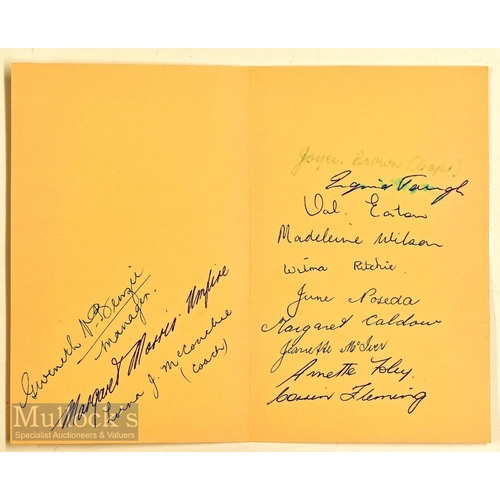 Gweneth N. Benzie
Manager.
Margaret Morris. Umpire
Lorna J. McConchie
(coach)
Joyce Brown (Capt)
Val. Eaton
Madeleine Wilson
Wilma Ritchie.
June Noseda
Margaret Caldow
Jeanette McIver
Annette Foley.
Fleming
Mullock's
Specialist Auctioneers & Valuers